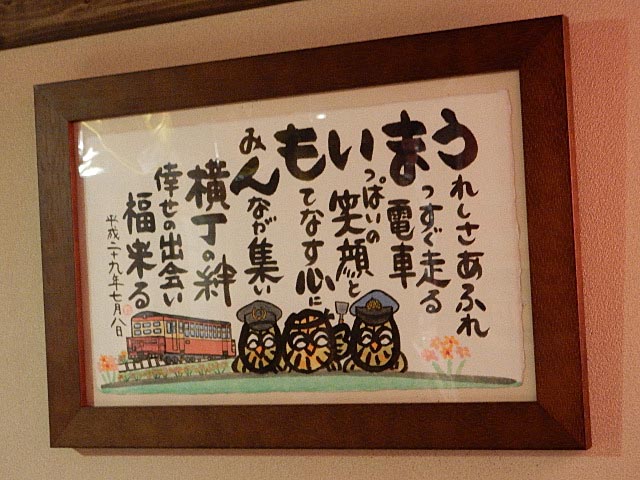 うれしさあふれ
まっすぐ走る
電車
いっぱいの
笑顔と
もてなす心に
みんなが集い
横丁の絆
幸せの出会い
福来る
平成二十九年七月八日